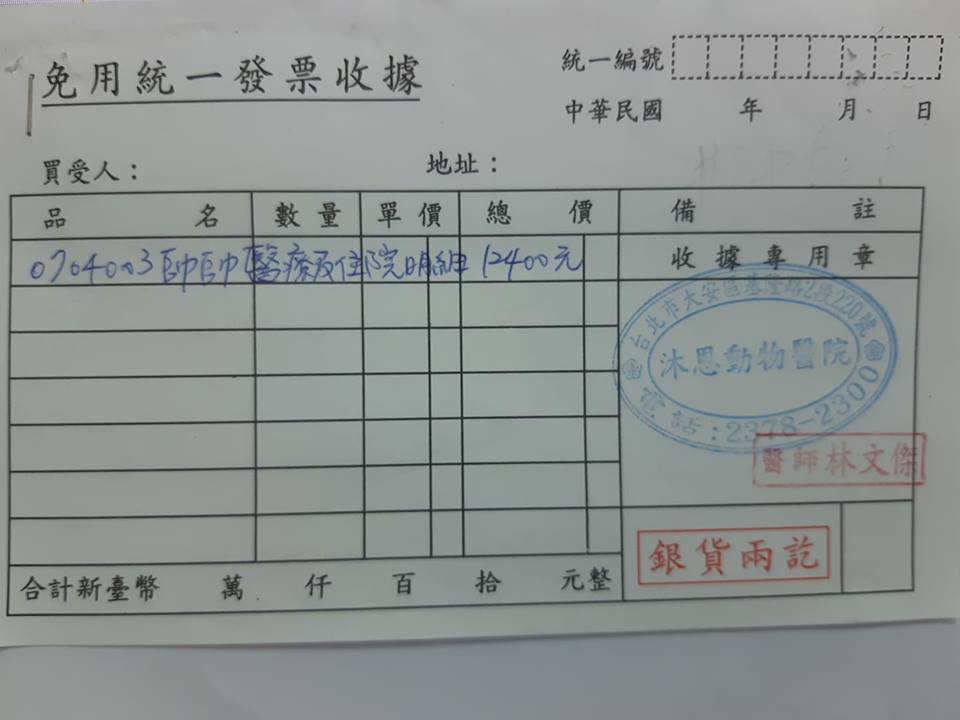 免用統一發票收據
統一編號
中華民國 年 月 日
買受人： 地址：
品名 數量 單價 總價 備註
0704003 帥帥醫療及住院明細 12400元 收據專用章
台北市大安區基隆路2段220號
沐恩動物醫院
電話：2378-2300
醫師林文傑
銀貨兩訖
合計新臺幣 萬 仟 百 拾 元整